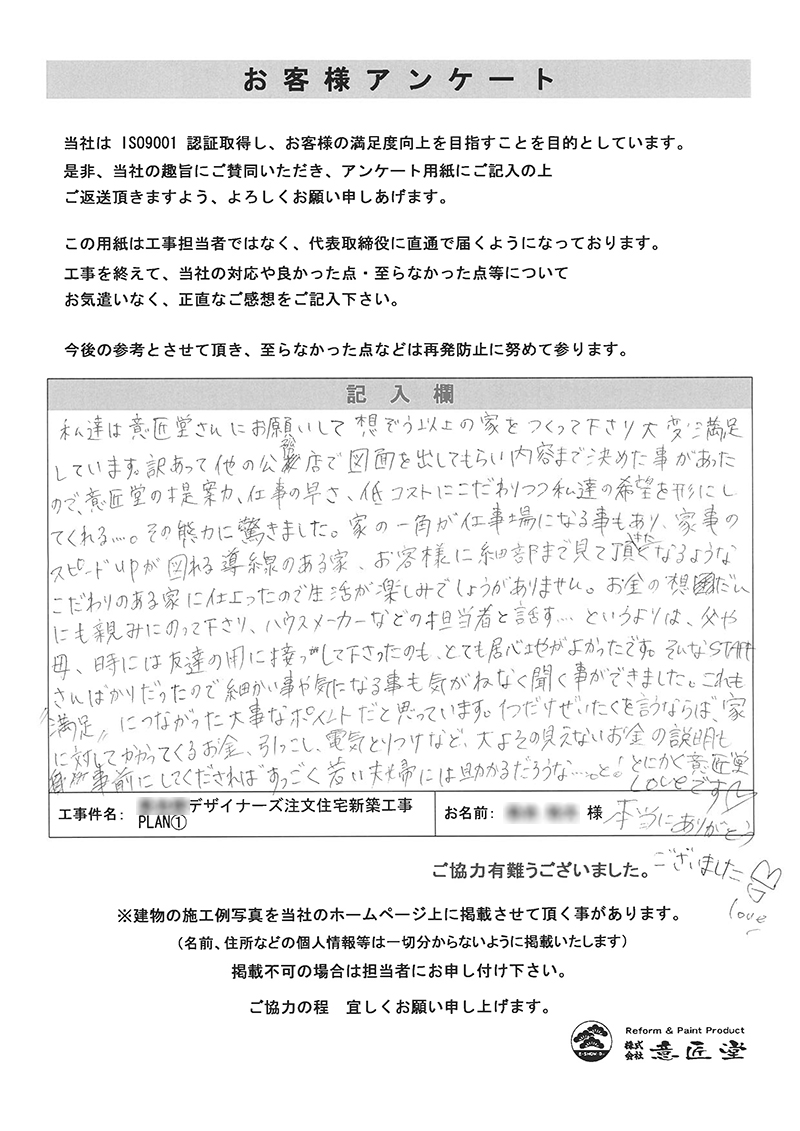 お客様アンケート
当社は ISO9001 認証取得し、お客様の満足度向上を目指すことを目的としています。
是非、当社の趣旨にご賛同いただき、アンケート用紙にご記入の上
ご返送頂きますよう、よろしくお願い申しあげます。
この用紙は工事担当者ではなく、代表取締役に直通で届くようになっております。
工事を終えて、当社の対応や良かった点・至らなかった点等について
お気遣いなく、正直なご感想をご記入下さい。
今後の参考とさせて頂き、至らなかった点などは再発防止に努めて参ります。
記入欄
私達は意匠堂さんにお願いして想ぞう以上の家をつくって下さり大変満足
しています。訳あって他の公務店で図面を出してもらい内容まで決めた事があった
ので、意匠堂の提案力、仕事の早さ、低コストにこだわりつつ私達の希望を形にし
てくれる…。その能力に驚きました。家の一角が仕事場になる事もあり、家事の
スピードUPが図れる導線のある家、お客様に細部まで見て頂きたくなるような
こだわりのある家に仕上ったので生活が楽しみでしょうがありません。お金の想だん
にも親みにのって下さり、ハウスメーカーなどの担当者と話す…というよりは、父や
母、時には友達の用に接っして下さったのも、とても居心地がよかったです。そんなSTAFF
さんばかりだったので細かい事や気になる事も気がねなく聞く事ができました。これも
〃満足〃につながった大事なポイントだと思っています。1つだけぜいたくを言うならば、家
に対してかかってくるお金、引っこし、電気とりつけなど、大よその見えないお金の説明も
事前にしてくだされば すっごく若い夫婦には助かるだろうな…。と!とにかく意匠堂
loveです♡
工事件名: デザイナーズ注文住宅新築工事
PLAN①
お名前: 様
本当にありがとう
ございました
love
ご協力有難うございました。
※建物の施工例写真を当社のホームページ上に掲載させて頂く事があります。
(名前、住所などの個人情報等は一切分からないように掲載いたします)
掲載不可の場合は担当者にお申し付け下さい。
ご協力の程　宜しくお願い申し上げます。
Reform & Paint Product
株式会社 意匠堂